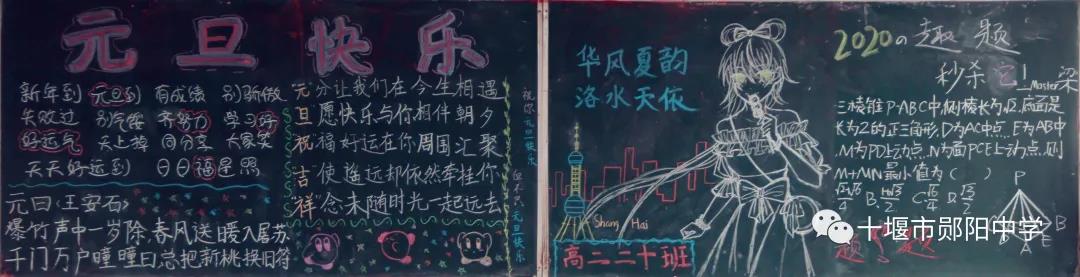 元旦快乐
新年到 元旦到 有成绩 别骄傲
失败过 别气馁 齐努力 学习好
好运气 天上掉 同分享 大家笑
天天好运到 日日福星照
元日(王安石)
爆竹声中一岁除,春风送暖入屠苏
千门万户曈曈日总把新桃换旧符
元分让我们在今生相遇
旦愿快乐与你相伴朝夕
祝福好运在你周围汇聚
吉使遥远却依然牵挂你
祥念未随时光一起远去
祝你元旦快乐
元旦快乐
华风夏韵
洛水天依
Shang Hai
高二二十班
2020の趣题
秒杀它!
Master梁
三棱锥P-ABC中,侧棱长为√2,底面是
长为2的正三角形,D为AC中点,E为AB中
,M为PD上动点,N为面PCE上动点,则
M+MN最小值为( )
P
B
A
十堰市郧阳中学